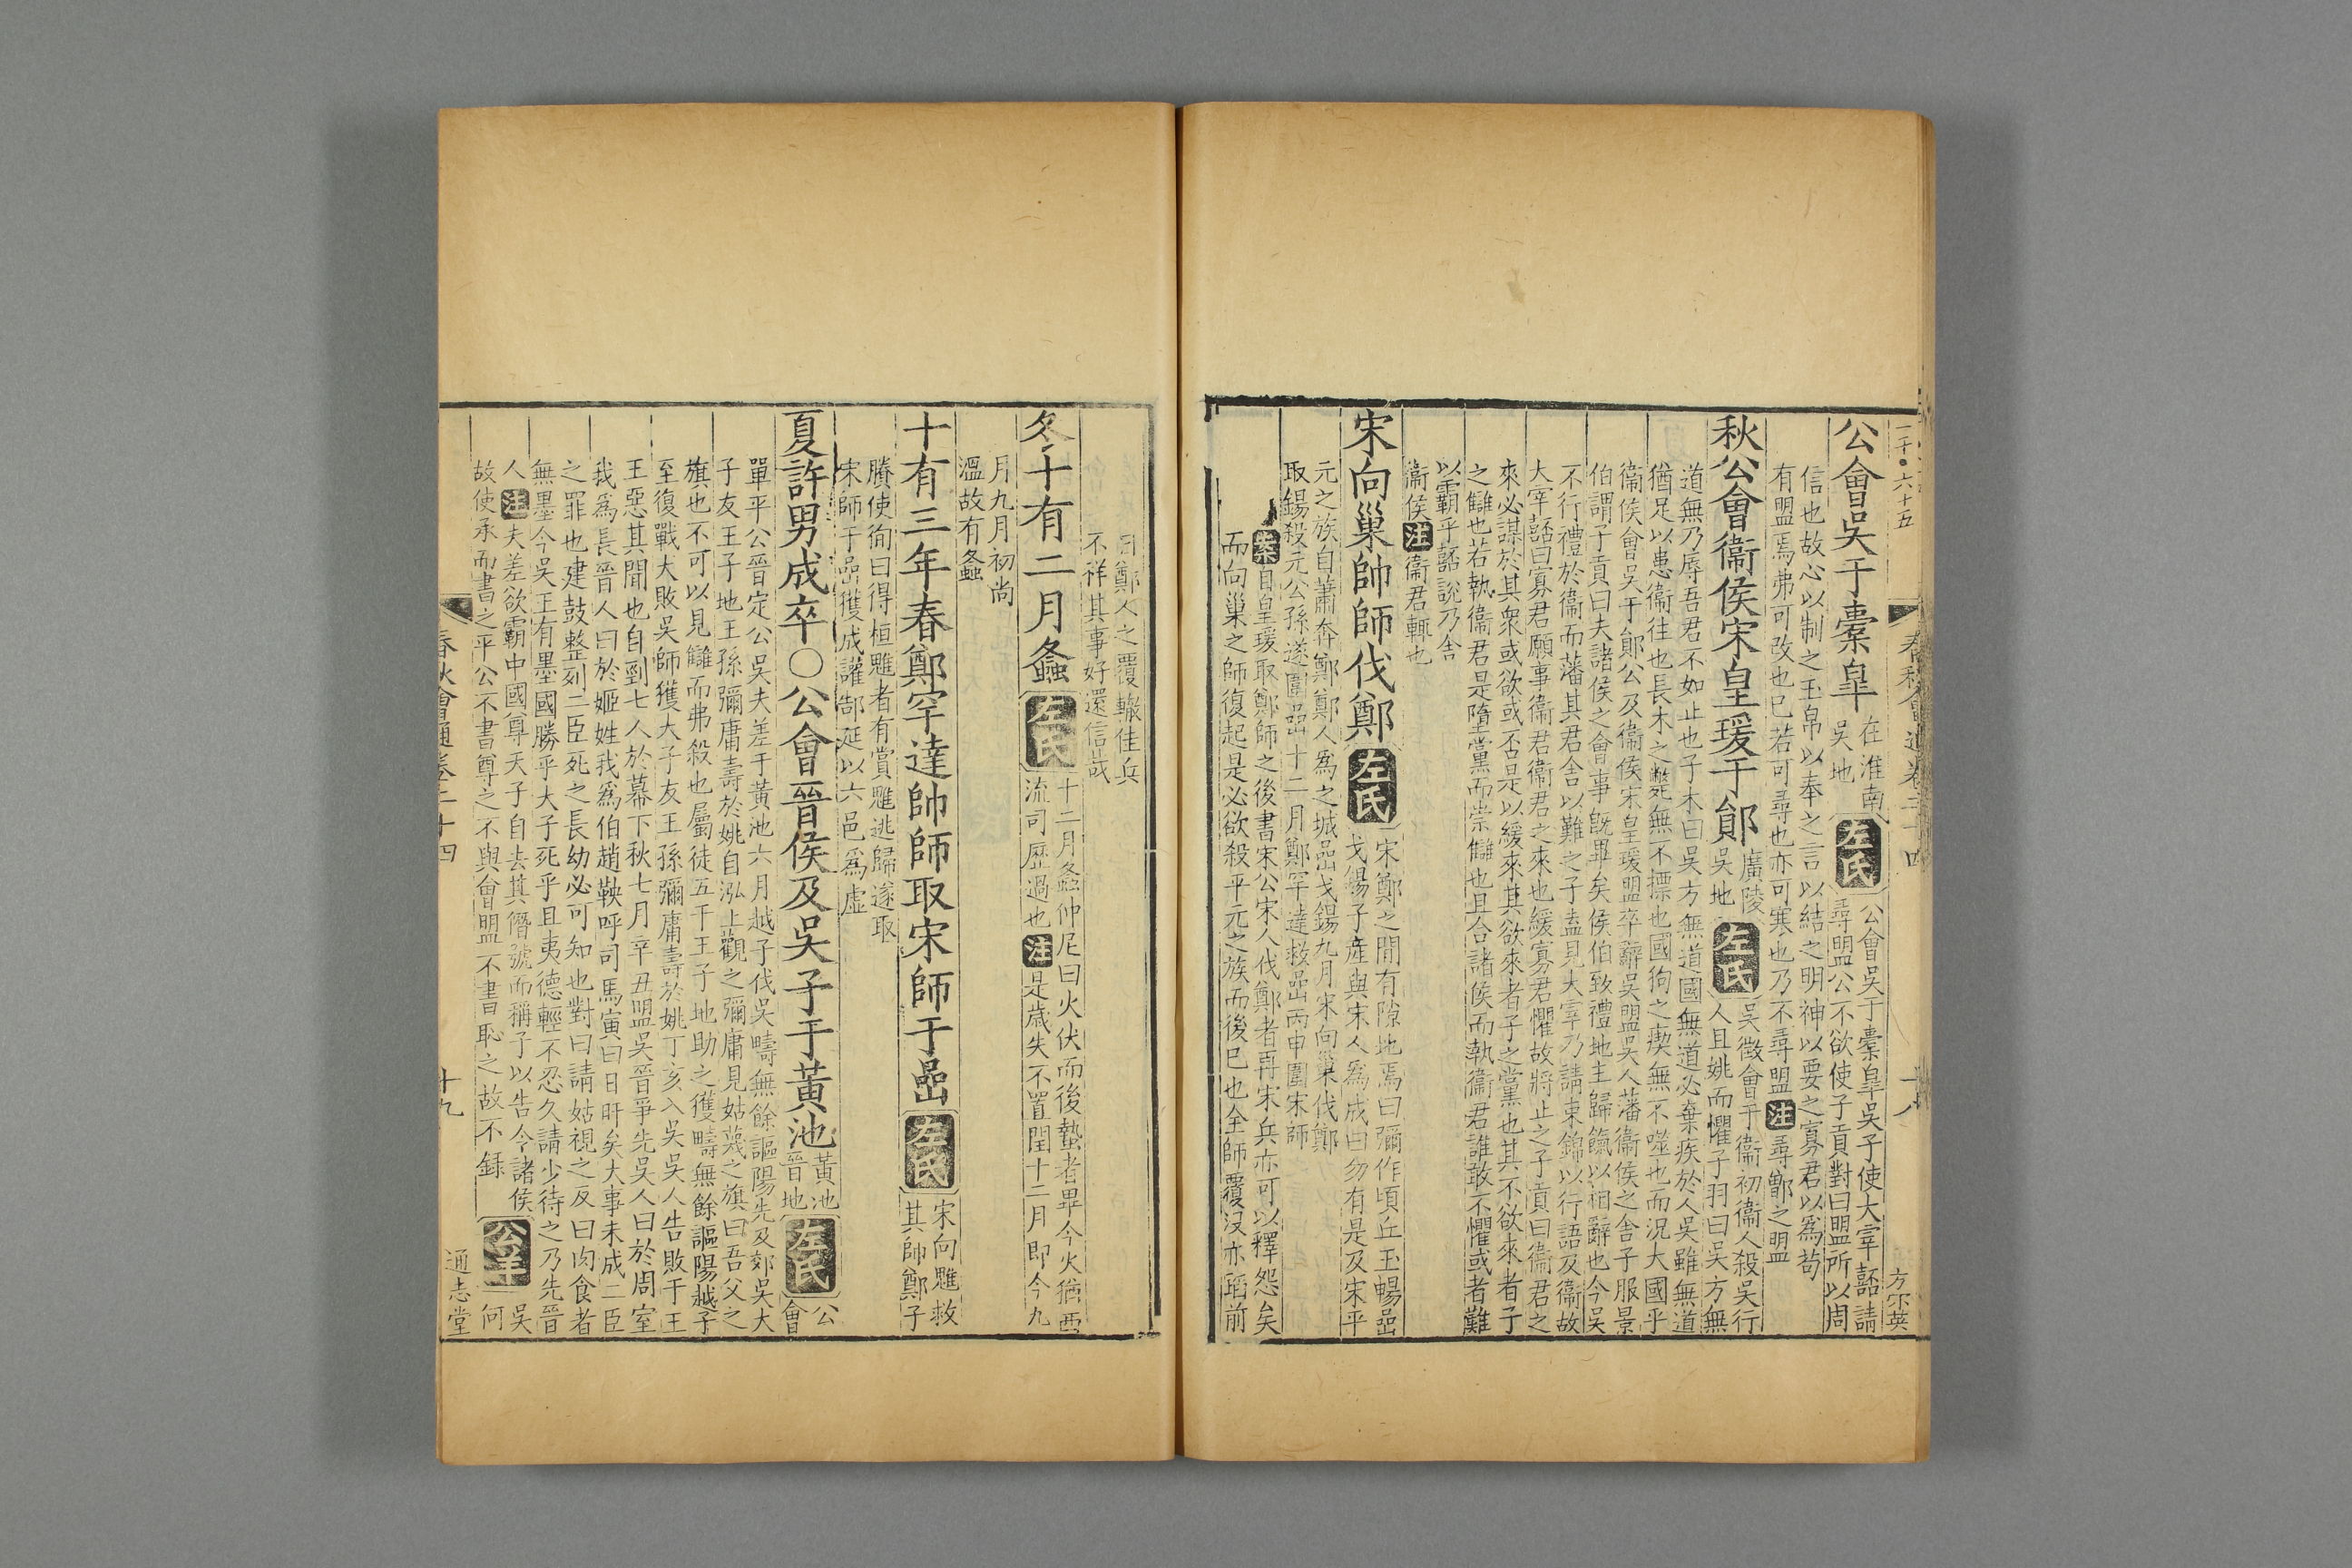 一千·六十五
春秋會通卷二十四
十八
方不英
公會吳于橐皐 在淮南吳地 左氏 公會吳于橐皐吳子使大宰嚭請尋盟公不欲使子貢對曰盟所以周
信也故心以制之玉帛以奉之言以結之明神以要之寡君以爲苟
有盟焉弗可改也已若可尋也亦可寒也乃不尋盟 注 尋鄫之盟
秋公會衞侯宋皇瑗于鄖 廣陵吳地 左氏 吳徵會于衞初衞人殺吳行人且姚而懼子羽曰吳方無
道無乃辱吾君不如止也子木曰吳方無道國無道必棄疾於人吳雖無道
猶足以患衞往也長木之斃無不摽也國狗之瘈無不噬也而況大國乎
衞侯會吳于鄖公及衞侯宋皇瑗盟卒辭吳盟吳人藩衞侯之舍子服景
伯謂子貢曰夫諸侯之會事旣畢矣侯伯致禮地主歸餼以相辭也今吳
不行禮於衞而藩其君舍以難之子盍見大宰乃請束錦以行語及衞故
大宰嚭曰寡君願事衞君衞君之來也緩寡君懼故將止之子貢曰衞君之
來必謀於其衆或欲或否是以緩來其欲來者子之黨也其不欲來者子
之讎也若執衞君是墮黨而崇讎也且合諸侯而執衞君誰敢不懼或者難
以霸乎嚭說乃舍
衞侯 注 衞君輒也
宋向巢帥師伐鄭 左氏 宋鄭之閒有隙地焉曰彌作頃丘玉暢嵒戈錫子產與宋人爲成曰勿有是及宋平
元之族自蕭奔鄭鄭人爲之城嵒戈錫九月宋向巢伐鄭
取錫殺元公孫遂圍嵒十二月鄭罕達救嵒丙申圍宋師
案 自皇瑗取鄭師之後書宋公宋人伐鄭者再宋兵亦可以釋怨矣
而向巢之師復起是必欲殺平元之族而後已也全師覆没亦蹈前
日鄭人之覆轍佳兵
不祥其事好還信哉
冬十有二月螽 左氏 十二月螽仲尼曰火伏而後蟄者畢今火猶西流司歷過也 注 是歲失不置閏十二月即今九
月九月初尚
溫故有螽
十有三年春鄭罕達帥師取宋師于嵒 左氏 宋向魋救其師鄭子
賸使徇曰得桓魋者有賞魋逃歸遂取
宋師于嵒獲成讙郜延以六邑爲虛
夏許男成卒〇公會晉侯及吳子于黃池 黃池晉地 左氏 公會
單平公晉定公吳夫差于黃池六月越子伐吳疇無餘謳陽先及郊吳大
子友王子地王孫彌庸壽於姚自泓上觀之彌庸見姑蔑之旗曰吾父之
旗也不可以見讎而弗殺也屬徒五千王子地助之獲疇無餘謳陽越子
至復戰大敗吳師獲大子友王孫彌庸壽於姚丁亥入吳吳人告敗于王
王惡其聞也自剄七人於幕下秋七月辛丑盟吳晉爭先吳人曰於周室
我爲長晉人曰於姬姓我爲伯趙鞅呼司馬寅曰日旰矣大事未成二臣
之罪也建鼓整列二臣死之長幼必可知也對曰請姑視之反曰肉食者
無墨今吳王有墨國勝乎大子死乎且夷德輕不忍久請少待之乃先晉
人 注 夫差欲霸中國尊天子自去其僭號而稱子以告令諸侯
故使承而書之平公不書尊之不與會盟不書恥之故不錄 公羊 吳何
春秋會通卷二十四
十九
通志堂